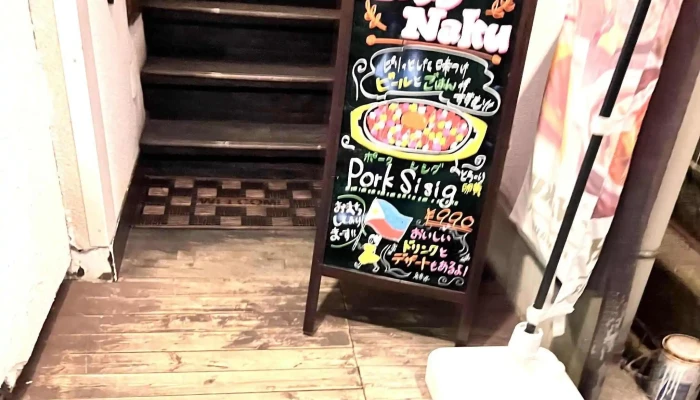 Naku
ピリッとした味つけ
ビールとごはんが
すすむ!!
ポーク シシグ
Pork Sisig
とろ〜り
卵黄
お待ち
しており
ます!!
¥990
おいしい
ドリンクと
デザートもあるよ!
WELCOME